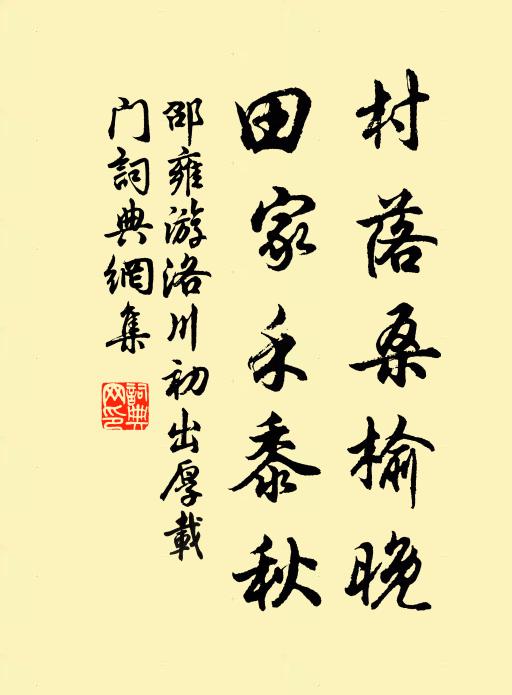 村落桑榆晚
田家禾黍秋
邵雍游洛川初出厚載
门詞典網集
詞典
网印